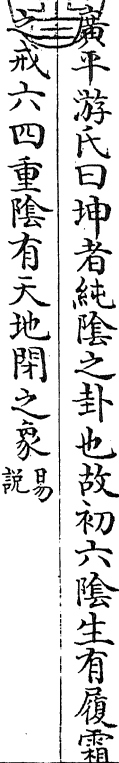 廣平游氏曰坤者純陰之卦也故初六陰生有履霜
之戒六四重陰有天地閉之象易說